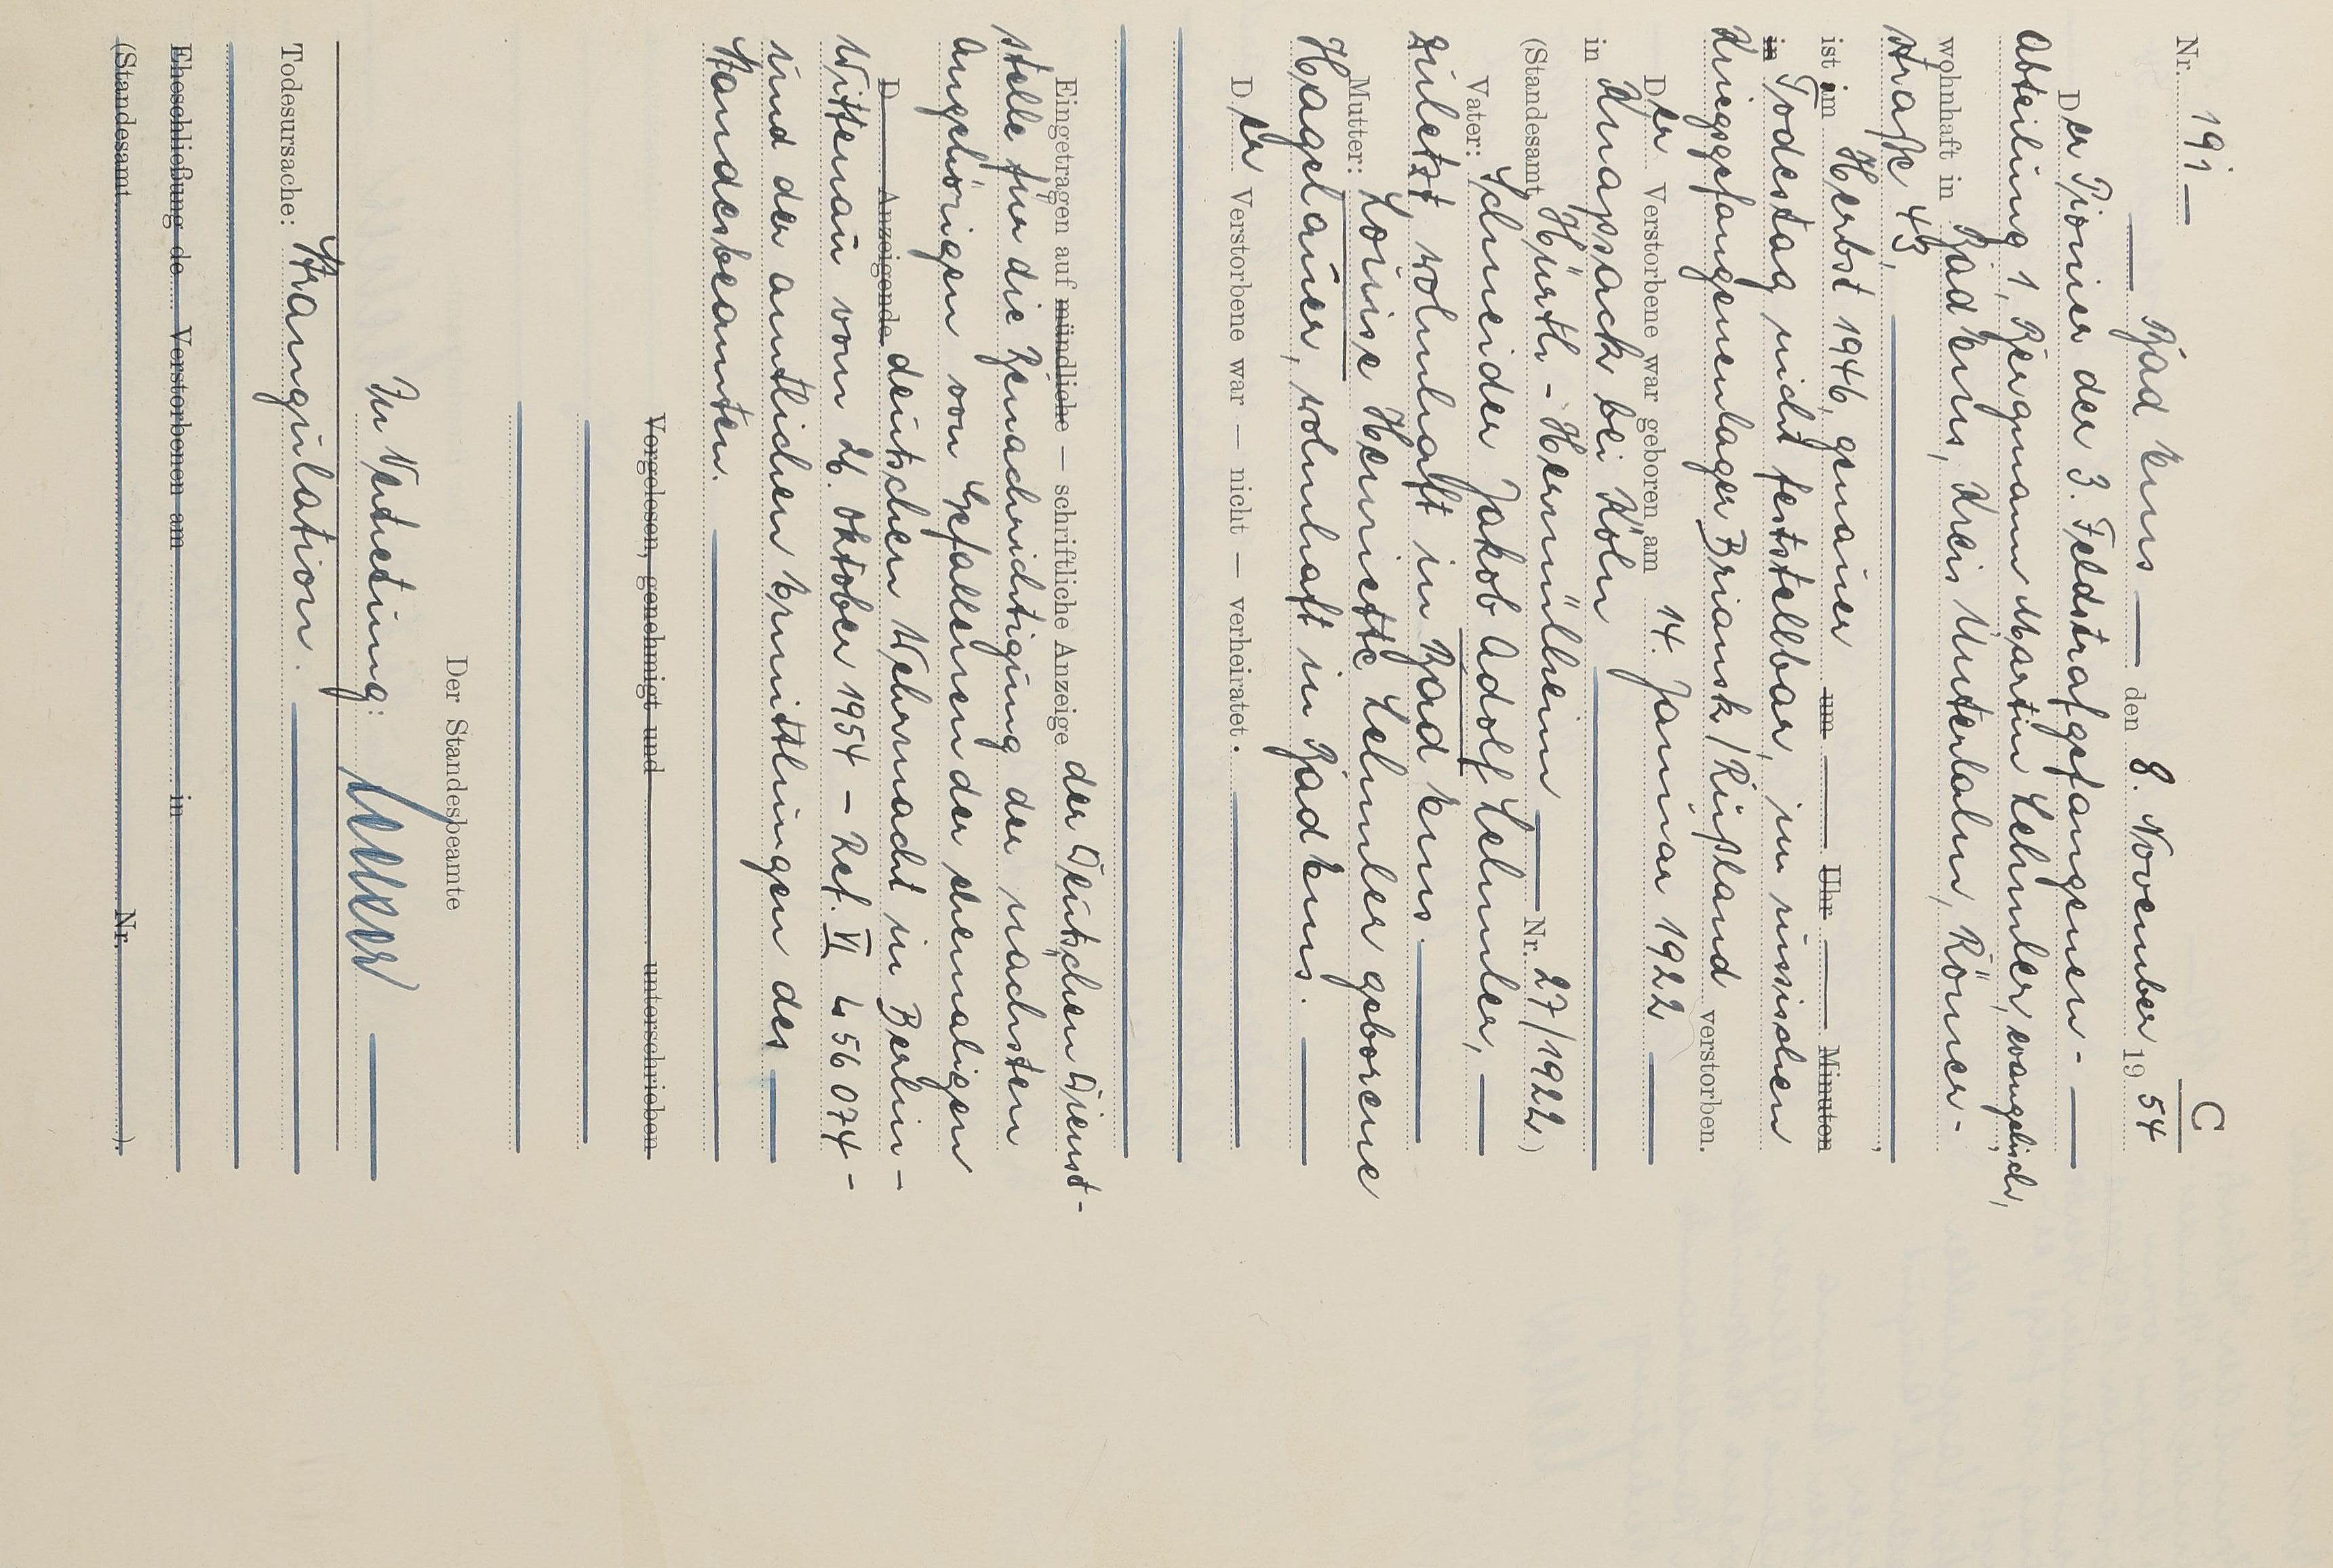 C
Nr. 191
Bad Ems den 8. November 1954
Der Pionier der 3. Feldstrafgefangenen-
abteilung 1, Bergmann Martin Lehmler, evangelisch,
wohnhaft in Bad Ems, Kreis Unterlahn, Römer-
straße 43,
ist im Herbst 1946, genauer um Uhr Minuten
in Todestag nicht feststellbar, im russischen
Kriegsgefangenenlager Briansk/Rußland verstorben.
Der Verstorbene war geboren am 14. Januar 1922
in Knapsack bei Köln
(Standesamt Hürth-Hermülheim Nr. 27/1922)
Vater: Schneider Jakob Adolf Lehmler,
zuletzt wohnhaft in Bad Ems.
Mutter: Louise Henriette Lehmler geborene
Hagelauer, wohnhaft in Bad Ems.
Der Verstorbene war — nicht — verheiratet.
Eingetragen auf mündliche — schriftliche Anzeige der Deutschen Dienst-
stelle für die Benachrichtigung der nächsten
Angehörigen von Gefallenen der ehemaligen
D Anzeigende deutschen Wehrmacht in Berlin-
Wittenau vom 26. Oktober 1954 - Ref. VI 456 074-
und der amtlichen Ermittlungen des
Standesbeamten.
Vorgelesen, genehmigt und unterschrieben
Der Standesbeamte
In Vertretung:
Todesursache: Strangulation.
Eheschließung de Verstorbenen am in
(Standesamt Nr. )